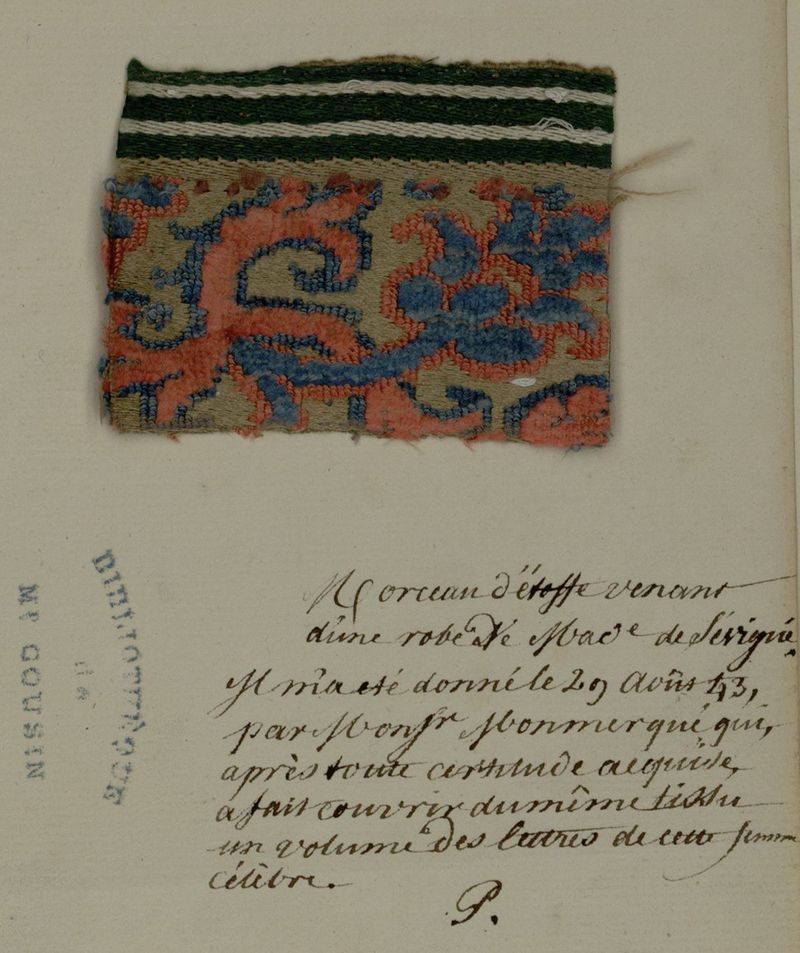 Morceau d'étoffe venant
d'une robe de Mad^e de Sévigné.
Il m'a été donné le 29 Août 43,
par Mons^r Monmerqué qui,
après toute certitude acquise,
a fait couvrir du même tissu
un volume des lettres de cette femme
célèbre.
P.
Mr COUSIN
BIBLIOTHÈQUE